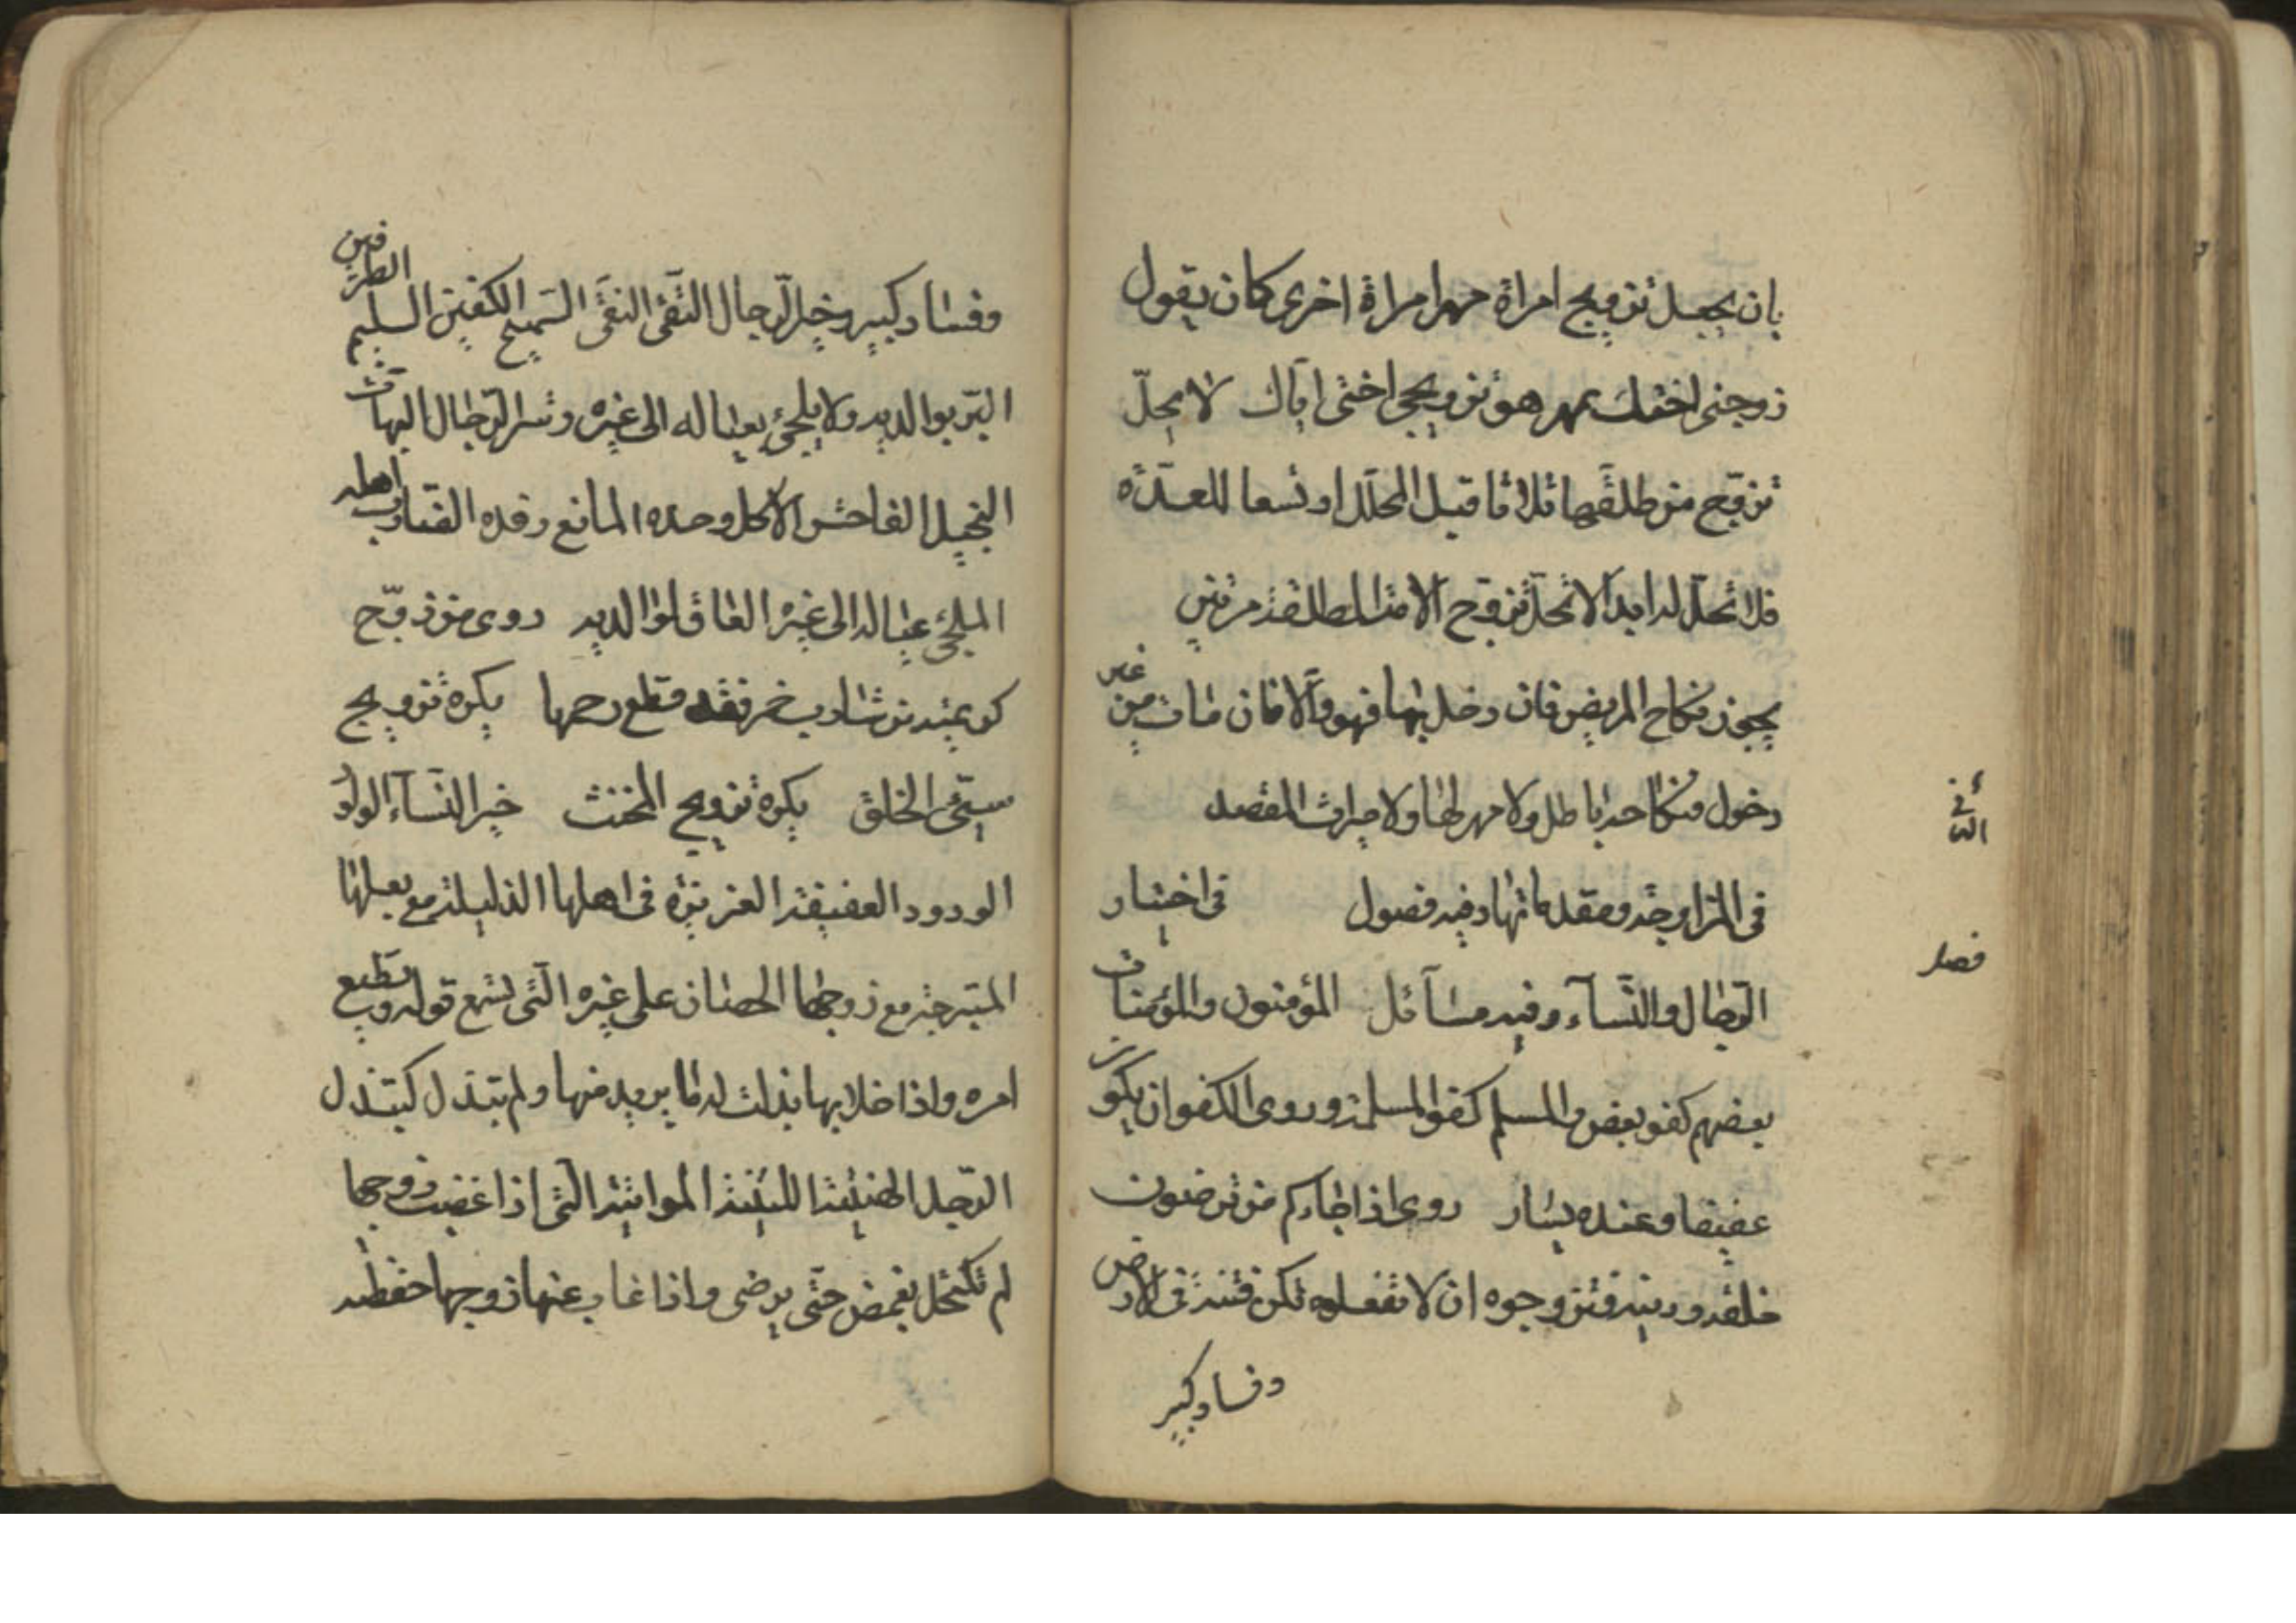 بان يجعل تزويج امراة مهرا مراة اخرى كان يقول
زوجنى اختك بمهر هو تزويجى اختى اياك لا يحلّ
تزوّج من طلقها ثلاثا قبل المحلّل او تسعا للعدّه
فلا تحلّ له ابدا لا تحلّ تزوّج الامة المطلقة مرتين
يجوز نكاح المريض فان دخل بها فهو والّا فان مات من غير
دخول فنكاحه باطل ولا مهر لها ولا ميراث المقصد
الثانى
فى المزاوجة ومقدماتها وفيه فصول فى اختيار
فصل
الرجال والنّسآء وفيه مسآئل المؤمنون والمؤمنات
بعضهم كفو بعض والمسلم كفو المسلمة وروى الكفو ان يكون
عفيفا وعنده يسار روى اذا جاءكم من ترضون
خلقه ودينه فتزوجوه ان لا تفعلوه تكن فتنة فى الارض
وفساد كبير
وفساد كبير وخير الرّجال التّقى النقىّ السّميح الكفين السليم الطرفين
البرّ بوالديه ولا يلجئ بعياله الى غيره وشر الرّجال البهات
البخيل الفاحش الآكل وحده المانع رفده الضارب اهله
الملجئ عياله الى غيره العاق لوالديه روى من زوّج
كريمته من شارب خمر فقد قطع رحمها يكره تزويج
سيّئ الخلق يكره تزويج المخنث خير النّسآء الولود
الودود العفيفة العزيزة فى اهلها الذليلة مع بعلها
المتبرجة مع زوجها الحصان على غيره الّتى تسمع قوله وتطيع
امره واذا خلا بها بذلت له ما يريد منها ولم تبتذل كتبتذل
الرّجل الهنيئة اللينة المواتية الّتى اذا غضب زوجها
لم تكتحل بغمض حتّى يرضى واذا غاب عنها زوجها حفظته